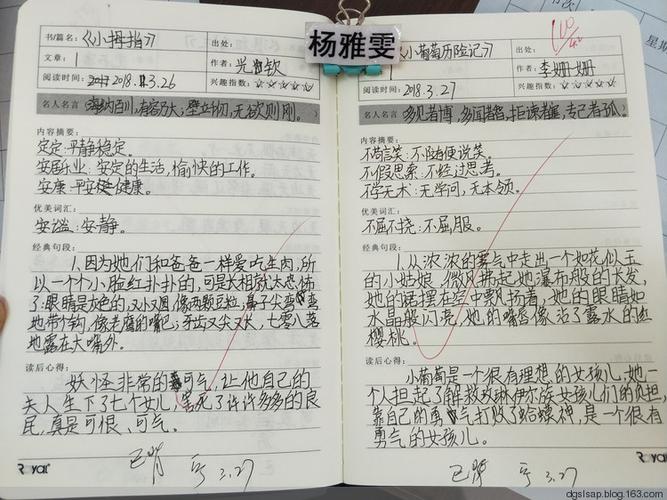 杨雅雯
书/篇名：《小拇指》
出处：
文章：1
作者：光如钦
阅读时间：2018.3.26
兴趣指数：☆☆☆☆☆
名人名言 海纳百川，有容乃大；壁立千仞，无欲则刚。
内容摘要：
定定：平静稳定。
安居乐业：安定的生活，愉快的工作。
安康：平安健康。
优美词汇：
安谧：安静。
经典句段：
1.因为她们和爸爸一样爱吃生肉，所
以一个个小脸红扑扑的，可是长相就太恐怖
了：眼睛是灰色的，又小又圆，像两颗豆粒；鼻子尖弯弯
地带个钩，像老鹰的嘴巴；牙齿又尖又长，七零八落
地露在大嘴外。
读后心得：
妖怪非常的可气，让他自己的
夫人生下了七个女儿，害死了许许多多的良
民，真是可恨、可气。
3.27
Royal
小葡萄历险记》
出处：
110
作者：李姗姗
阅读时间：2018.3.27
兴趣指数：☆☆☆☆☆
名人名言 多见者博，多闻者智，拒谏者塞，专己者孤。
内容摘要：
不苟言笑：不随便说笑。
不假思索：不经过思考。
不学无术：无学问，无本领。
优美词汇：
不屈不挠：不屈服。
经典句段：
1.从浓浓的雾气中走出一个如花似玉
的小姑娘，微风拂起她瀑布般的大发，
她的裙摆在空中飘扬着，她的眼睛如
水晶般闪亮，她的嘴唇像沾了露水的红
樱桃。
读后心得：
小葡萄是一个很有理想的女孩儿，她一
个人担起了解救玫琳伊尔族女孩儿们的负担，
靠自己的勇气打败了蛤蟆神，是一个很有
勇气的女孩儿。
3.27
Royal
星期
dgslsap.blog.163.com